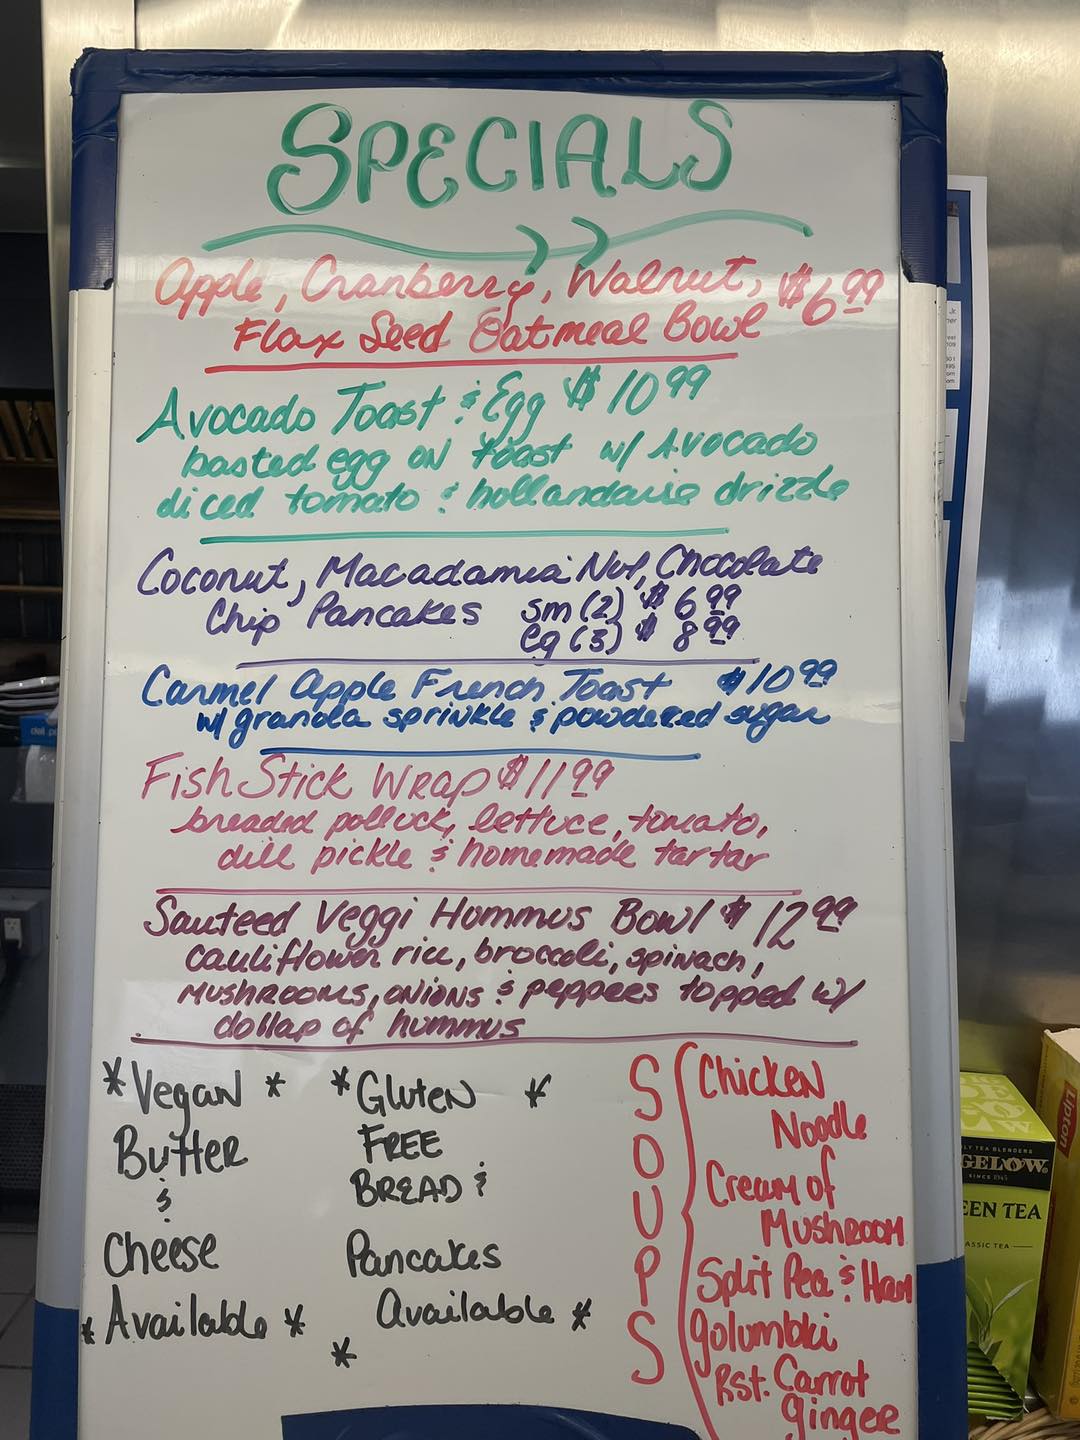 SPECIALS
Apple, Cranberry, Walnut, $6.99
Flax Seed Oatmeal Bowl
Avocado Toast & Egg $10.99
basted egg on toast w/ Avocado
diced tomato & hollandaise drizzle
Coconut, Macadamia Nut, Chocolate
Chip Pancakes sm (2) $ 6.99
Lg (3) $ 8.99
Carmel Apple French Toast $10.99
w/ granola sprinkle & powdered sugar
Fish Stick Wrap $11.99
breaded polluck, lettuce, tomato,
dill pickle & homemade tartar
Sauteed Veggi Hummus Bowl $12.99
cauliflower rice, broccoli, spinach,
mushrooms, onions & peppers topped w/
dollap of hummus
*Vegan *
Butter
&
Cheese
*Available *
*Gluten *
Free
Bread &
Pancakes
Available *
*
SOUPS
Chicken
Noodle
Cream of
Mushroom
Split Pea & Ham
Golumbki
Rst. Carrot
Ginger
GELOW
EEN TEA
ASSIC TEA
Lipton